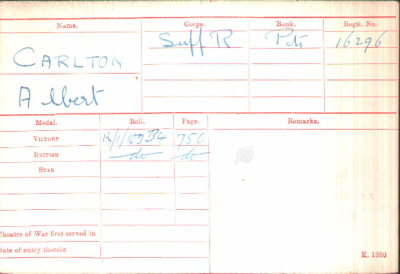 Name. Corps. Rank. Regtl. No.
CARLTON Suff R Pte 16296
Albert
Medal. Roll. Page. Remarks.
VICTORY K/1/103B4 750
BRITISH do do
STAR
Theatre of War first served in
Date of entry therein
K. 1380